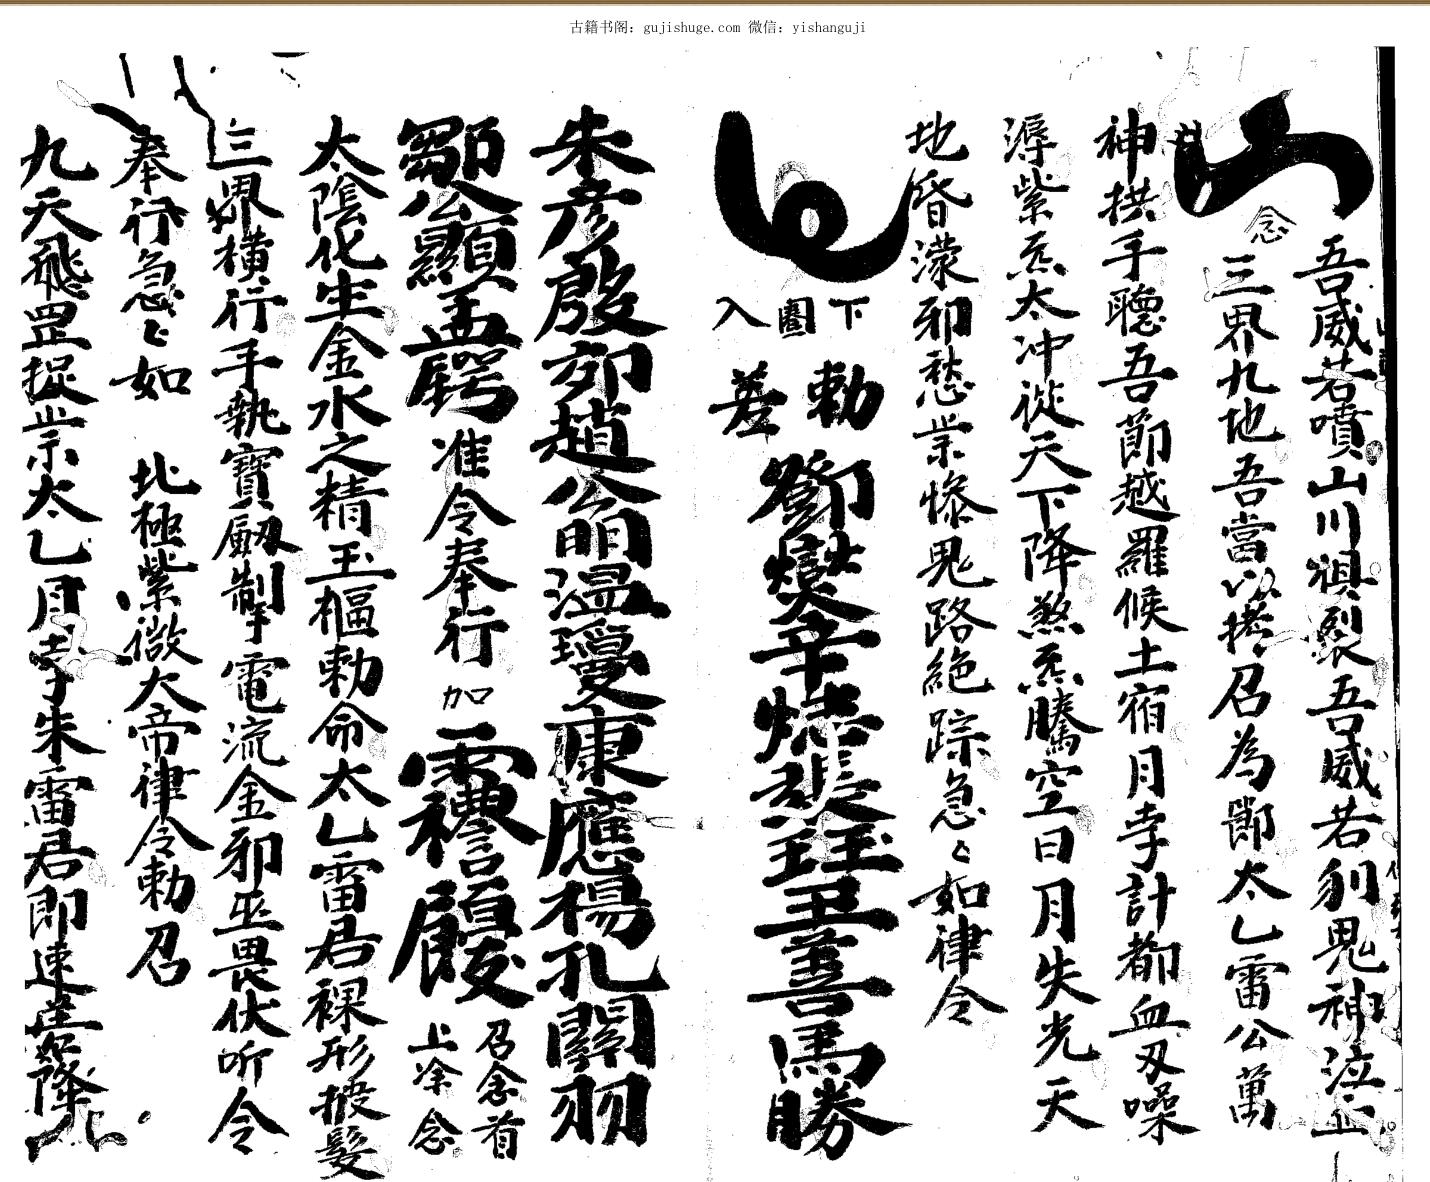 古籍书阁：gujishuge.com 微信：yishanguji
吾威若噴山川損裂吾威若利鬼神泣
念
三界九地吾當以召為鄷太乙雷公萬
神拱手聽吾節越羅候土宿月孛計都血刃噪
潯紫炁太冲從天下降煞炁騰空日月失光天
地昏濛邪愁祟慘鬼路絕踪急〻如律令
下圈入
勅
鄧燮辛王善馬勝
朱彥殷郊趙公明温瓊康應楊孔關羽
鄒公顯孟鍔准令奉行加
召念首
上凃念
太陰化生金水之精玉樞勅命太乙雷君裸形披髮
三界橫行手執寶劒制電流金邪巫畏伏听令
奉行急〻如 北極紫微大帝律令勅召
九天飛罡捉祟太乙月孛朱雷君即速降